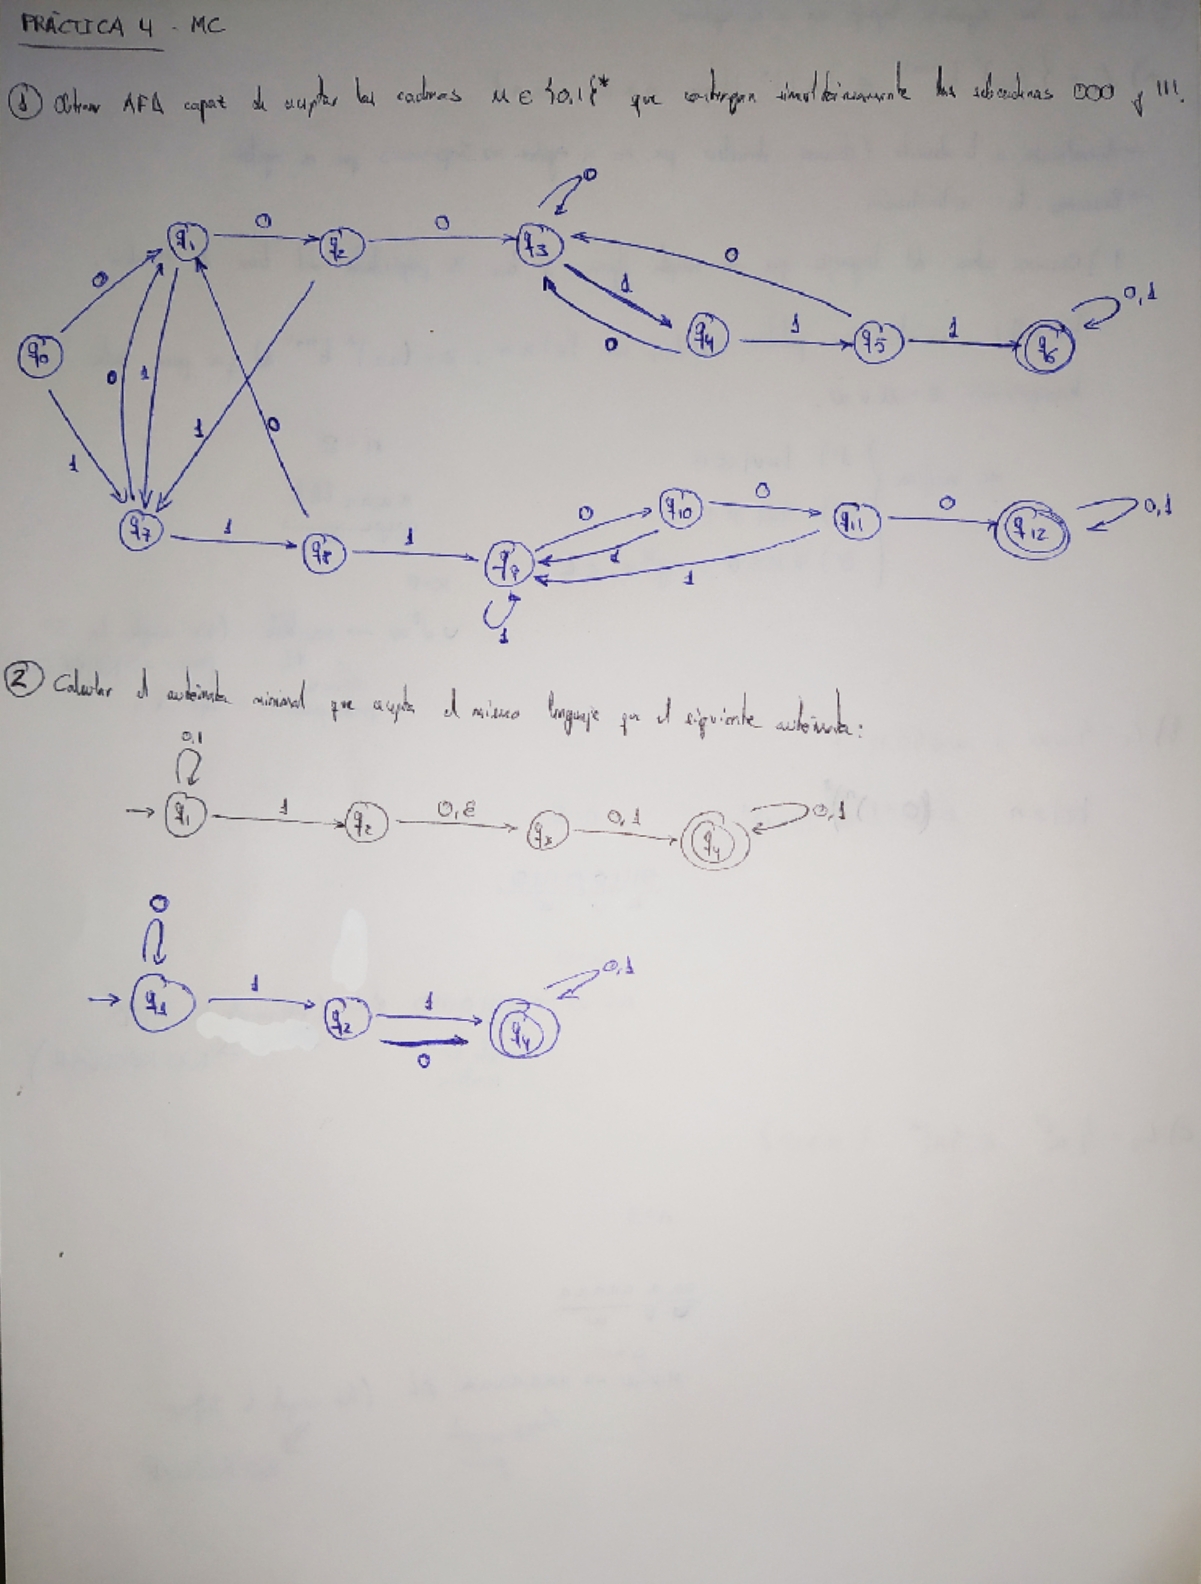 PRÁCTICA 4 - MC
① Obtener AFD capaz de aceptar las cadenas u ∈ {0,1}* que contengan simultáneamente las subcadenas 000 y 111.
0
q1 0 q2 0 q3
0 1 0 0,1
q0 0 1 0 q4 1 q5 1 q6
1 1 0
q7 1 q8 1 q9 0 q10 0 q11 0 q12 0,1
1 1
1
② Calcular el autómata minimal que acepta el mismo lenguaje que el siguiente autómata:
0,1
q1 1 q2 0,ε q3 0,1 q4 0,1
0
q1 1 q2 1 q4 0,1
0